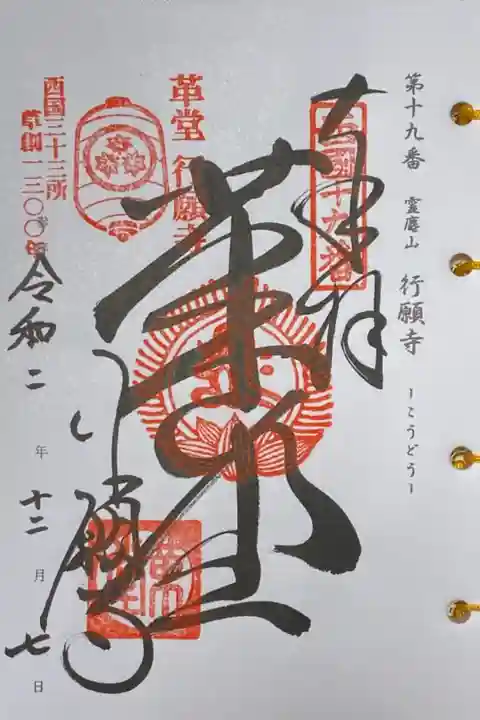 第十九番 霊麀山 行願寺 ーこうどうー
奉拝
西国十九番
革堂
革堂 行願寺
行願寺
西国三十三所
草創一三〇〇年
令和二年十二月七日